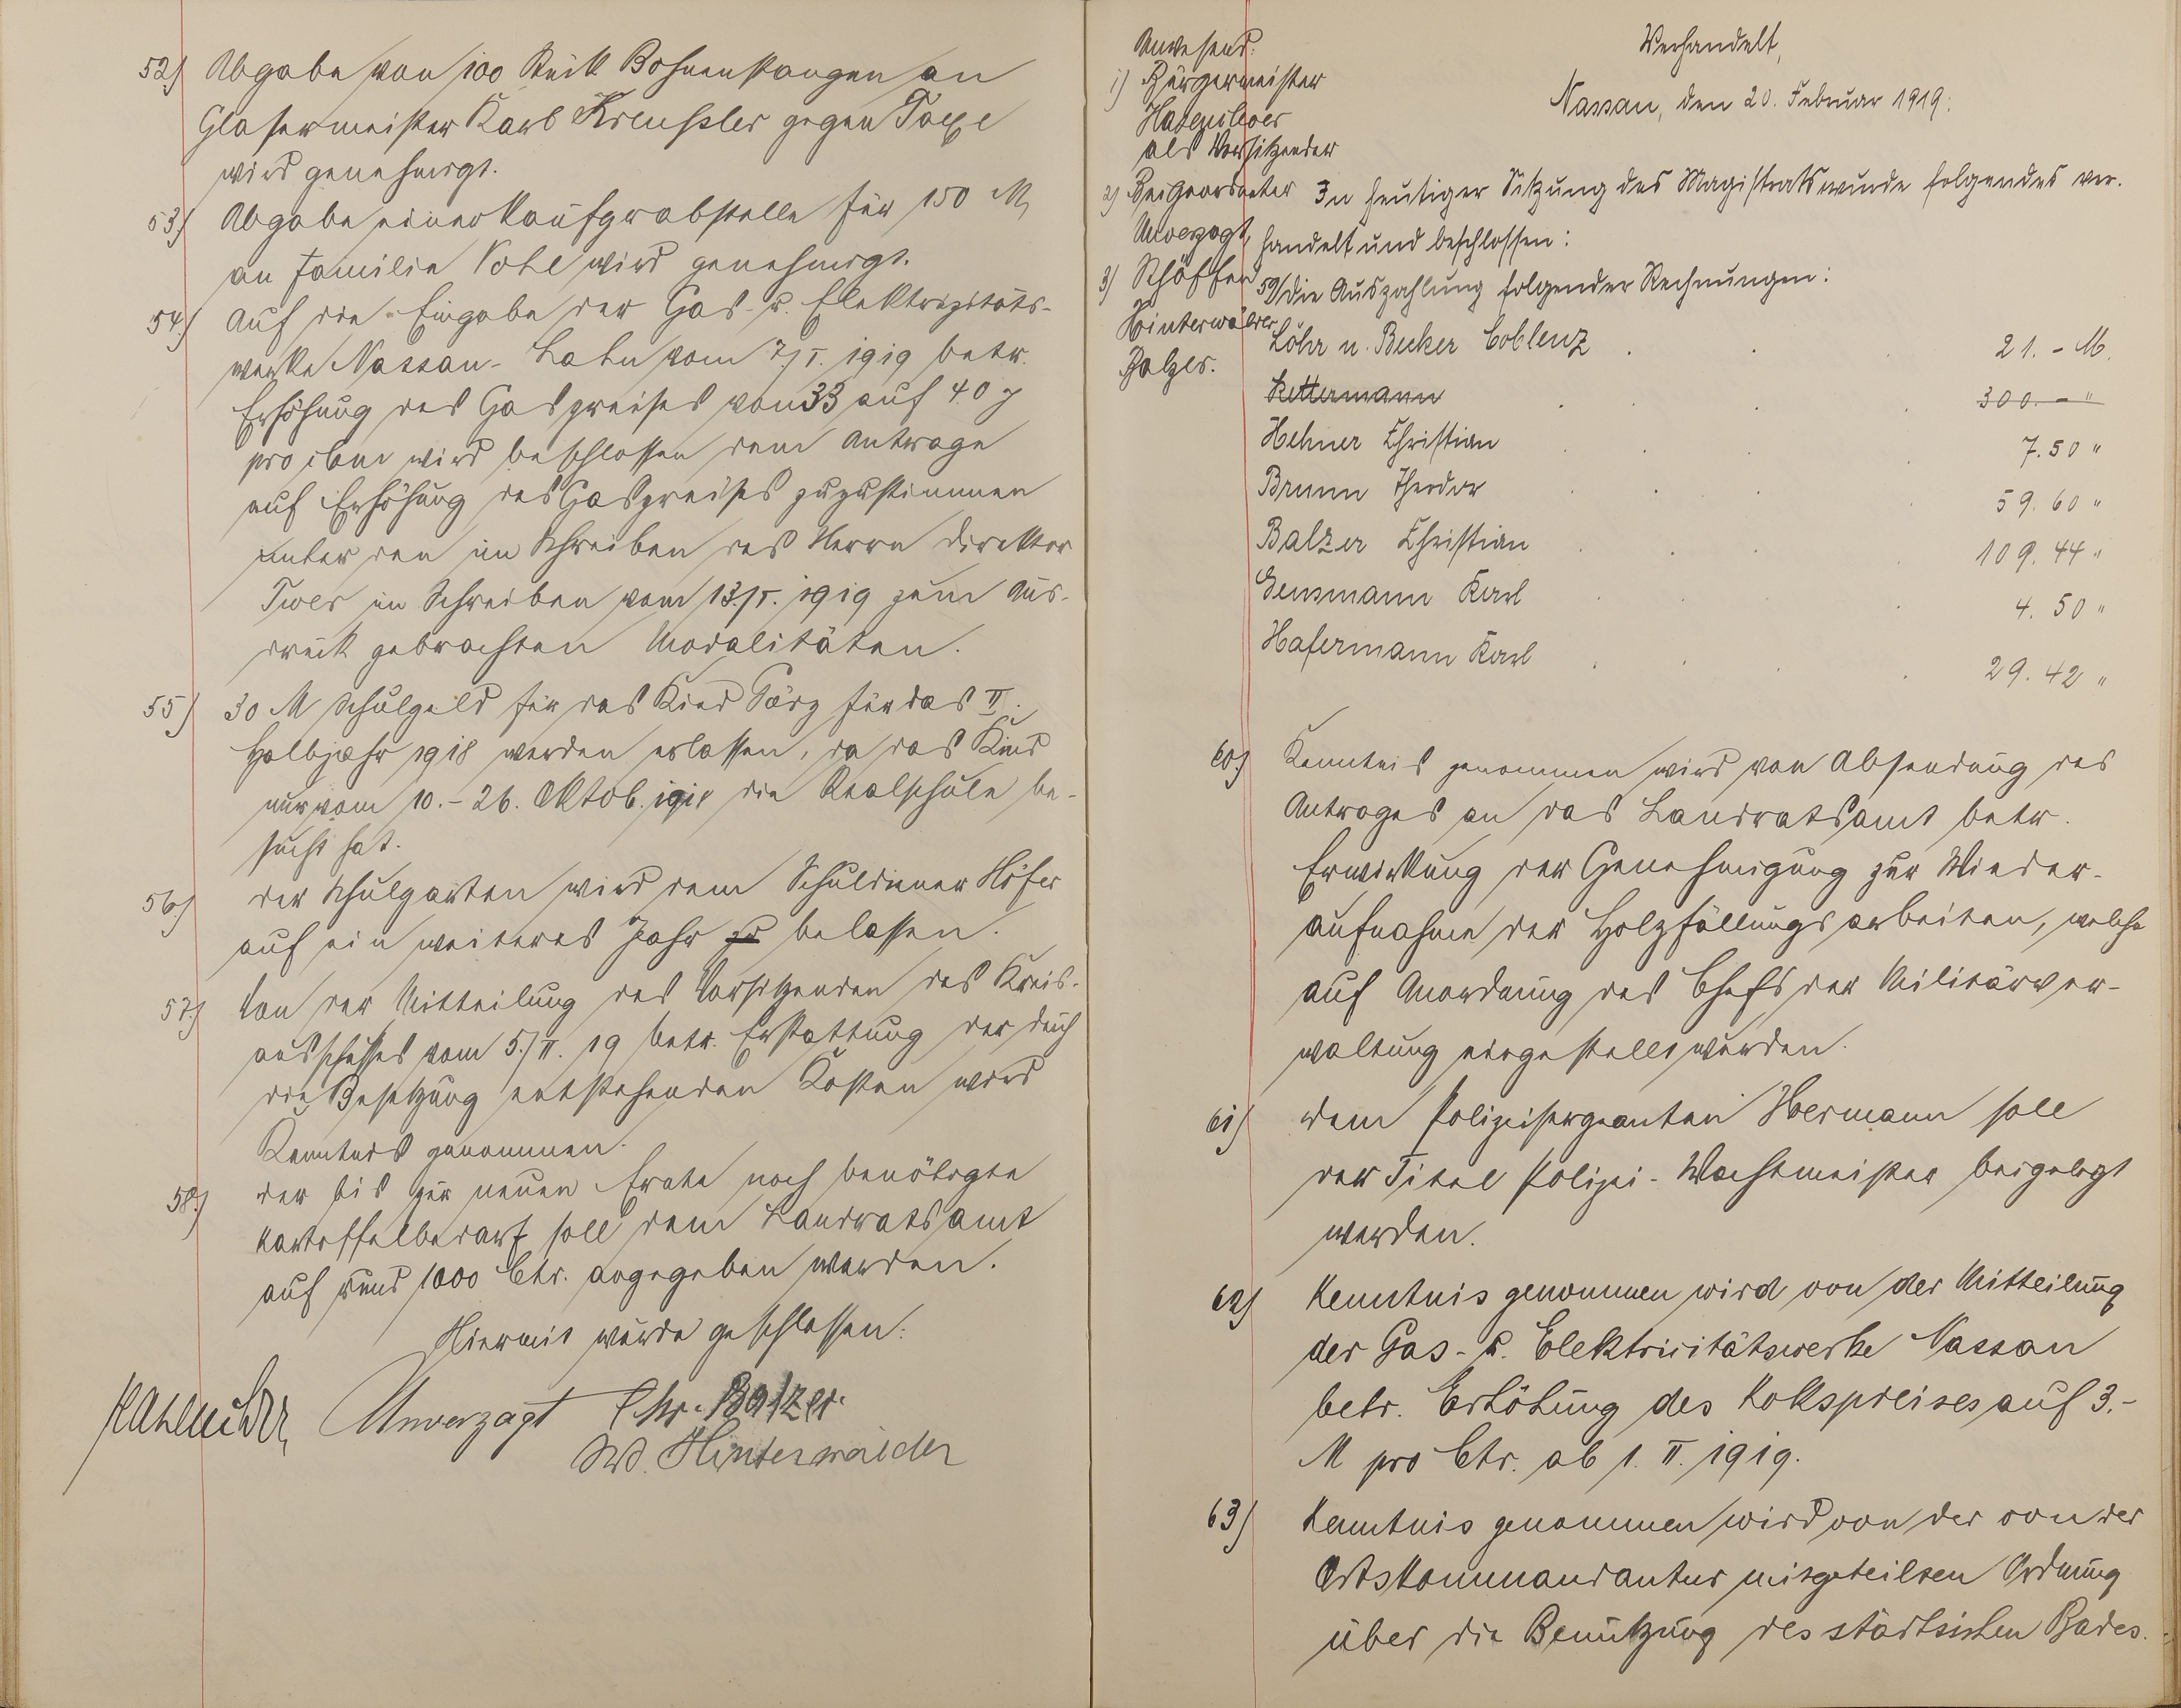 52.) Abgabe von 100 Stück Bohnenstangen an
Glasermeister Karl Kreußler gegen Taxe
wird genehmigt.
53.) Abgabe einer Kaufgrabstelle für 150 M
an Familie Pohl wird genehmigt.
54.) Auf die Eingabe der Gas- u. Elektrizitäts-
werke Nassau-Lahn vom 7./I. 1919 betr.
Erhöhung des Gaspreises von 33 auf 40 ₰
pro cbm wird beschlossen dem Antrage
auf Erhöhung des Gaspreises zuzustimmen
unter den im Schreiben des Herrn Direktor
im Schreiben vom 13./I. 1919 zum Aus-
druck gebrachten Modalitäten.
55) 30 M Schulgeld für das Kind Görg für das II.
Halbjahr 1918 werden erlassen, da das Kind
nur vom 10.-26. Oktob. 1918 die Realschule be-
sucht hat.
56.) Der Schulgarten wird dem Schuldiener Höfer
auf ein weiteres Jahr zu belassen.
57.) Von der Mitteilung des Vorsitzenden des Kreis-
ausschusses vom 5./II. 19 betr. Erstattung der durch
die Besetzung entstehenden Kosten wird
Kenntnis genommen.
58.) Der bis zur neuen Ernte noch benötigte
Kartoffelbedarf soll dem Landratsamt
auf rund 1000 Ctr. angegeben werden.
Hiermit wurde geschlossen:
Unverzagt Chr. Balzer.
Hinterwälder
Anwesend:
1) Bürgermeister
Hasenclever
als Vorsitzender
2) Beigeordneter
Unverzagt,
3) Schöffen
Hinterwälder
Balzer.
Verhandelt,
Nassau, den 20. Februar 1919.
In heutiger Sitzung des Magistrats wurde folgendes ver-
handelt und beschlossen:
59) Die Auszahlung folgender Rechnungen:
Löhr u. Becker Coblenz . . . 21.- M.
Kettermann . . . 300.- "
Hehner Christian . . . 7.50 "
Brunn Theodor . . . 59.60 "
Balzer Christian . . . 109.44 "
Gensmann Karl . . . 4.50 "
Hafermann Karl . . . 29.42 "
60.) Kenntnis genommen wird von Absendung des
Antrages an das Landratsamt betr.
Erwirkung der Genehmigung zur Wieder-
aufnahme der Holzfällungsarbeiten, welche
auf Anordnung des Chefs der Militärver-
waltung eingestellt wurden.
61) Dem Polizeisergeanten Hermann soll
der Titel Polizei-Wachtmeister beigelegt
werden.
62) Kenntnis genommen wird von der Mitteilung
der Gas- u. Elektricitätswerke Nassau
betr. Erhöhung des Kokspreises auf 3.-
M pro Ctr. ab 1. II. 1919.
63) Kenntnis genommen wird von der von der
Ortskommandantur mitgeteilten Ordnung
über die Benutzung des städtischen Bades.